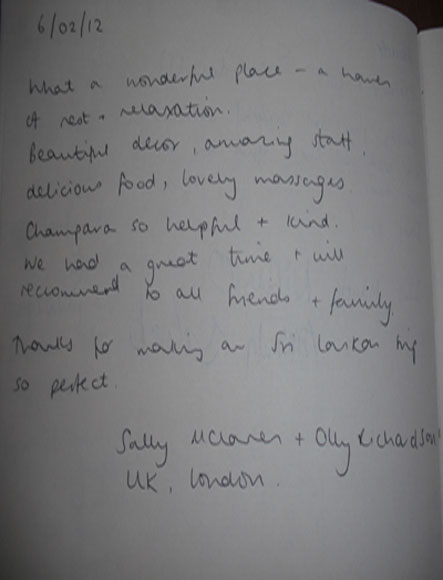 6/02/12
What a wonderful place - a haven
of rest + relaxation.
Beautiful decor, amazing staff,
delicious food, lovely massages.
Champara so helpful + kind.
We had a great time + will
recommend to all friends + family.
Thanks for making our Sri Lankan trip
so perfect.
Sally + Olly Richardson
UK, London.